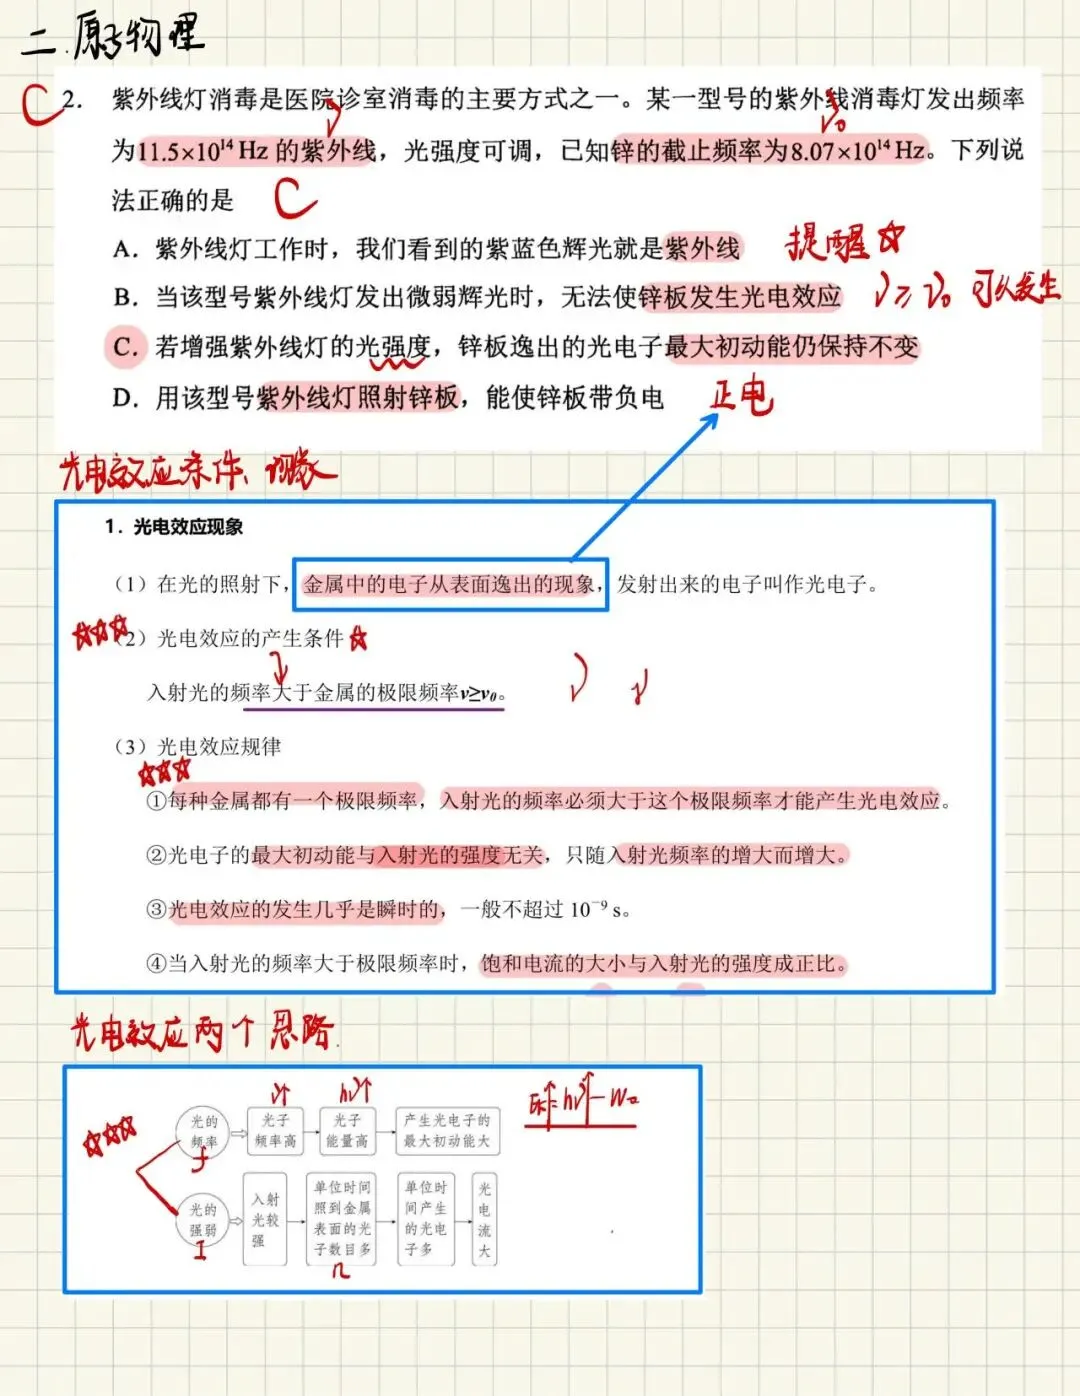 二.原子物理
C 2. 紫外线灯消毒是医院诊室消毒的主要方式之一。某一型号的紫外线消毒灯发出频率
ν ν₀
为11.5×10¹⁴ Hz 的紫外线，光强度可调，已知锌的截止频率为8.07×10¹⁴ Hz。下列说
法正确的是 C
A. 紫外线灯工作时，我们看到的紫蓝色辉光就是紫外线 提醒☆
B. 当该型号紫外线灯发出微弱辉光时，无法使锌板发生光电效应 ν≥ν₀ 可以发生
C. 若增强紫外线灯的光强度，锌板逸出的光电子最大初动能仍保持不变
D. 用该型号紫外线灯照射锌板，能使锌板带负电 正电
光电效应条件、现象
1. 光电效应现象
（1）在光的照射下，金属中的电子从表面逸出的现象，发射出来的电子叫作光电子。
☆☆☆（2）光电效应的产生条件☆
入射光的频率大于金属的极限频率ν≥ν₀。 ν ν
（3）光电效应规律
☆☆☆
①每种金属都有一个极限频率，入射光的频率必须大于这个极限频率才能产生光电效应。
②光电子的最大初动能与入射光的强度无关，只随入射光频率的增大而增大。
③光电效应的发生几乎是瞬时的，一般不超过 10⁻⁹ s。
④当入射光的频率大于极限频率时，饱和电流的大小与入射光的强度成正比。
光电效应两个思路.
ν↑ hν↑ Ek↑=hν↑-W₀
☆☆☆
光的
频率
f
光子
频率高
光子
能量高
产生光电子的
最大初动能大
光的
强弱
I
入射
光较
强
单位时间
照到金属
表面的光
子数目多
n
单位时
间产生
的光电
子多
光
电
流
大